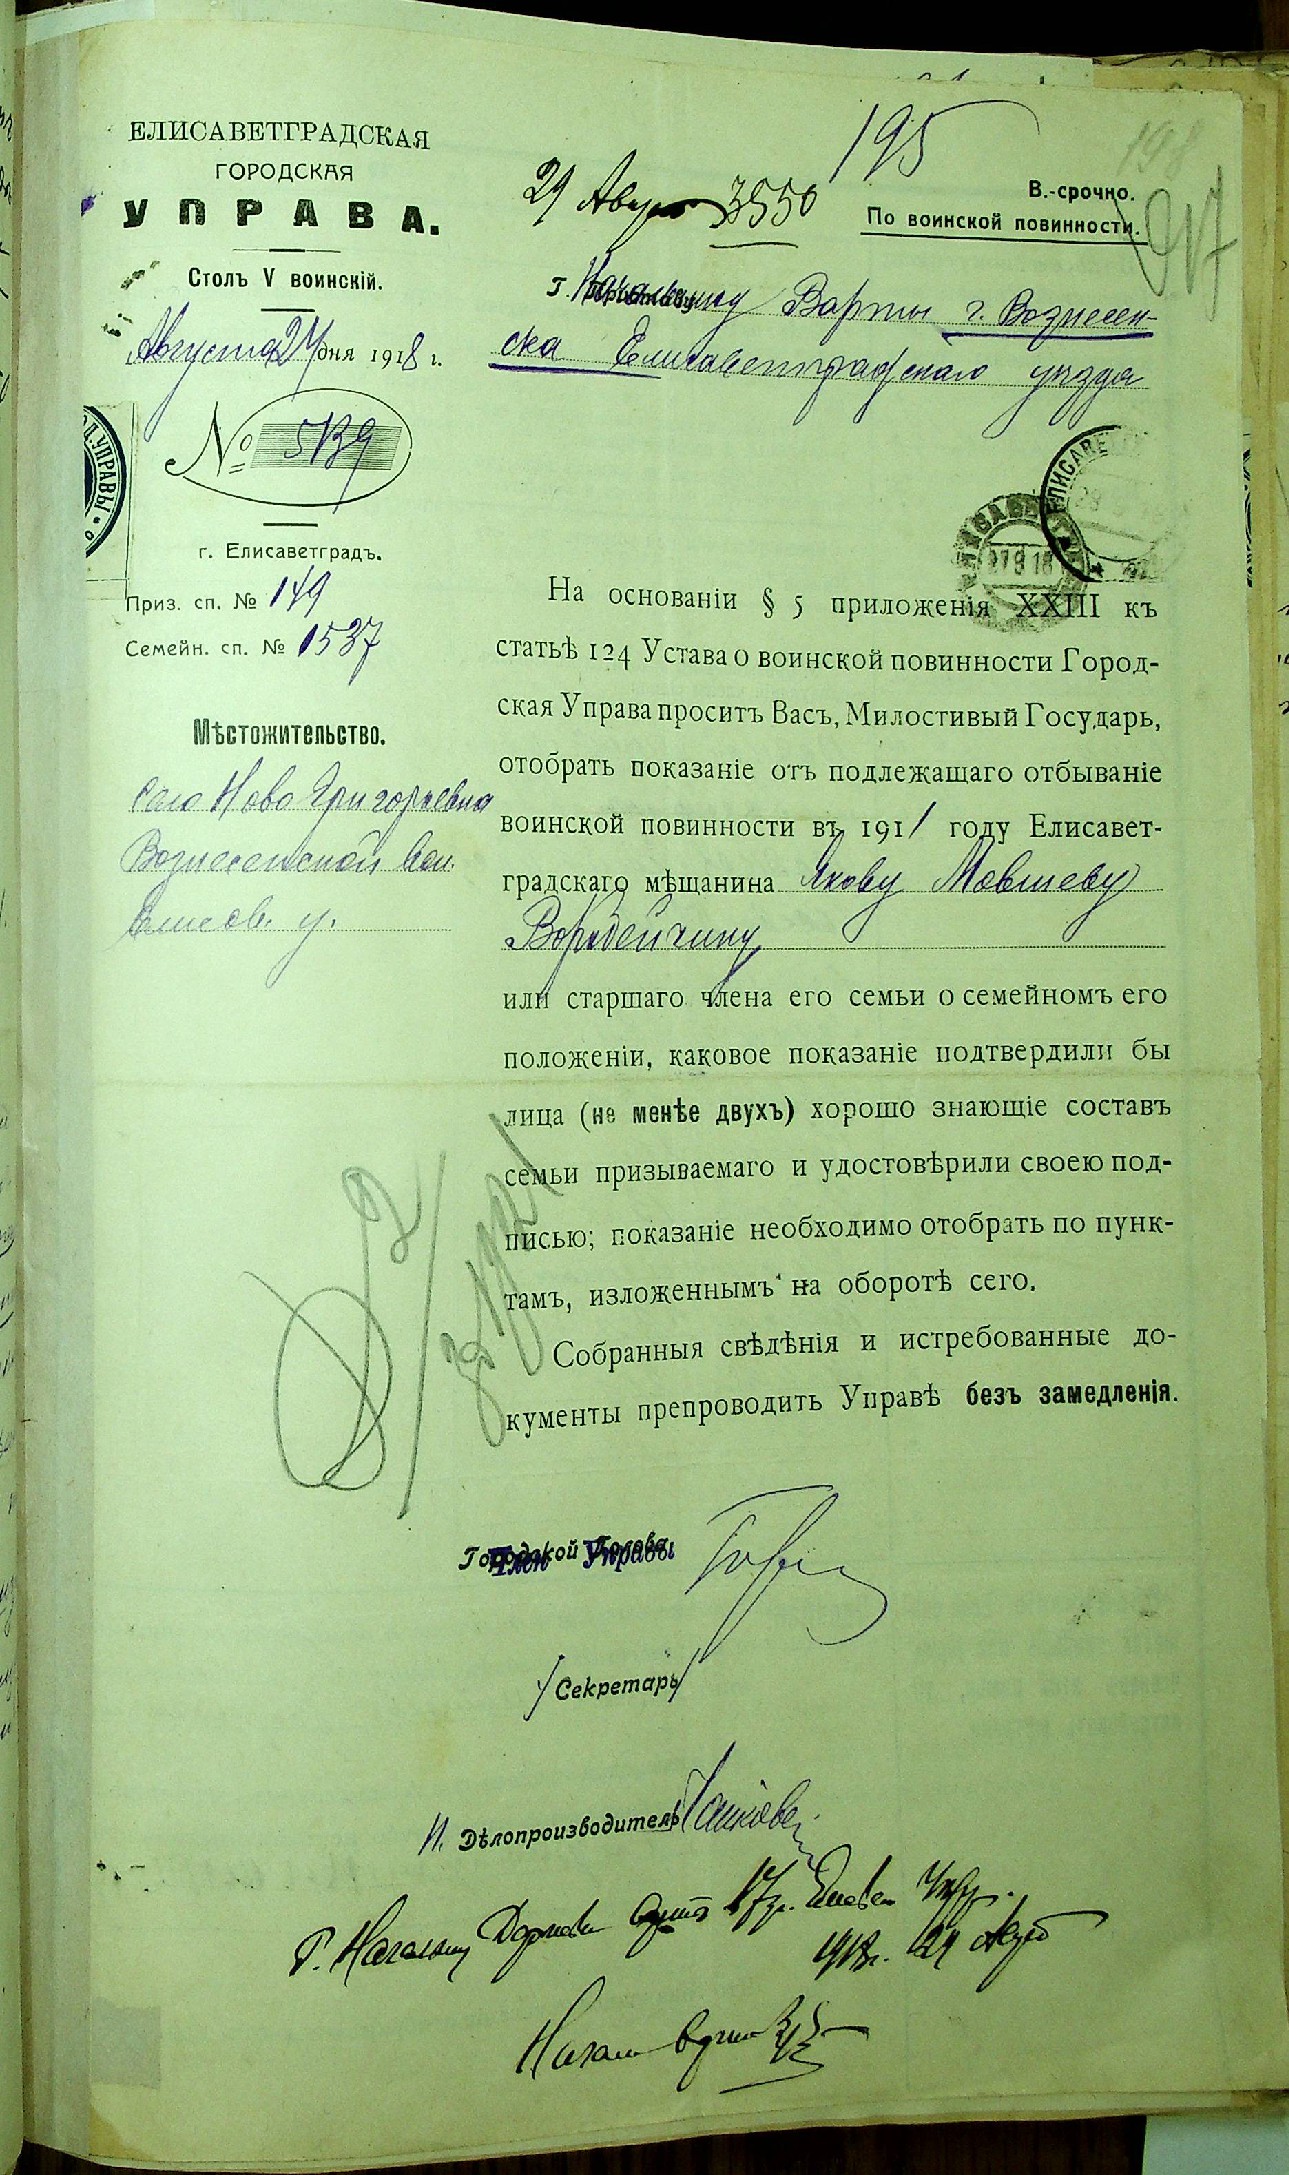 ЕЛИСАВЕТГРАДСКАЯ
ГОРОДСКАЯ
УПРАВА.
Столъ V воинскій.
Августа 24 дня 1918 г.
№ 5139
г. Елисаветградъ.
Приз. сп. № 149
Семейн. сп. № 1537
Мѣстожительство.
село Ново Григорьевка
Вознесенской вол.
Елисав. у.
195
198
217
29 Август 3550
В.-срочно.
По воинской повинности.
Г. Начальнику Варты г. Вознесен-
ска Елисаветградскаго уѣзда
ЕЛИСАВЕТГ
27 9 18
УПРАВЫ
На основаніи § 5 приложенія XXIII къ
статьѣ 124 Устава о воинской повинности Город-
ская Управа проситъ Васъ, Милостивый Государь,
отобрать показаніе отъ подлежащаго отбыванію
воинской повинности въ 1911 году Елисавет-
градскаго мѣщанина Якову Мовшеву
Воробейчику
или старшаго члена его семьи о семейномъ его
положеніи, каковое показаніе подтвердили бы
лица (не менѣе двухъ) хорошо знающіе составъ
семьи призываемаго и удостовѣрили своею под-
писью; показаніе необходимо отобрать по пунк-
тамъ, изложеннымъ на оборотѣ сего.
Собранныя свѣдѣнія и истребованные до-
кументы препроводить Управѣ безъ замедленія.
Городской Голова
Член Управы
Секретарь
И. Дѣлопроизводитель
Г. Начальнику
1918 г. 29 Авг